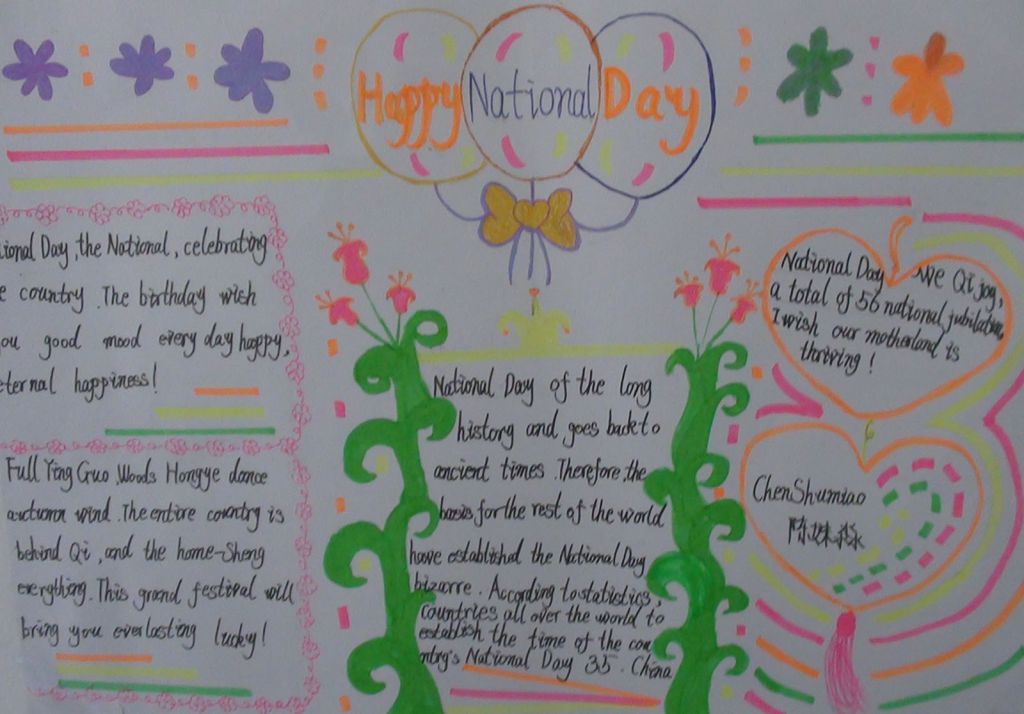 Happy National Day
tional Day, the National, celebrating
e country. The birthday wish
ou good mood every day happy,
eternal happiness!
Full Ying Guo, Woods Hongye dance
autumn wind. The entire country is
behind Qi, and the home-Sheng
everything. This grand festival will
bring you everlasting lucky!
National Day of the long
history and goes back to
ancient times. Therefore, the
basis, for the rest of the world
have established the National Day
bizarre. According to statistics,
countries all over the world to
establish the time of the cou
ntry's National Day 35. China
National Day We Qi joy,
a total of 56 national jubilation,
I wish our motherland is
thriving!
ChenShumiao
陈姝淼